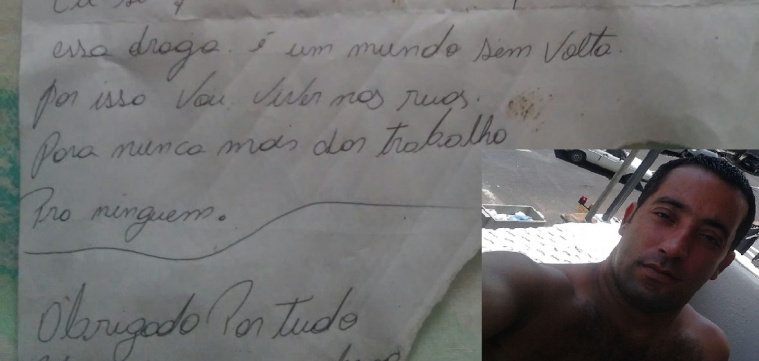 essa droga. é um mundo sem volta.
por isso vou viver nas ruas.
Para nunca mais dar trabalho
Pro ninguem.
Obrigado Por tudo